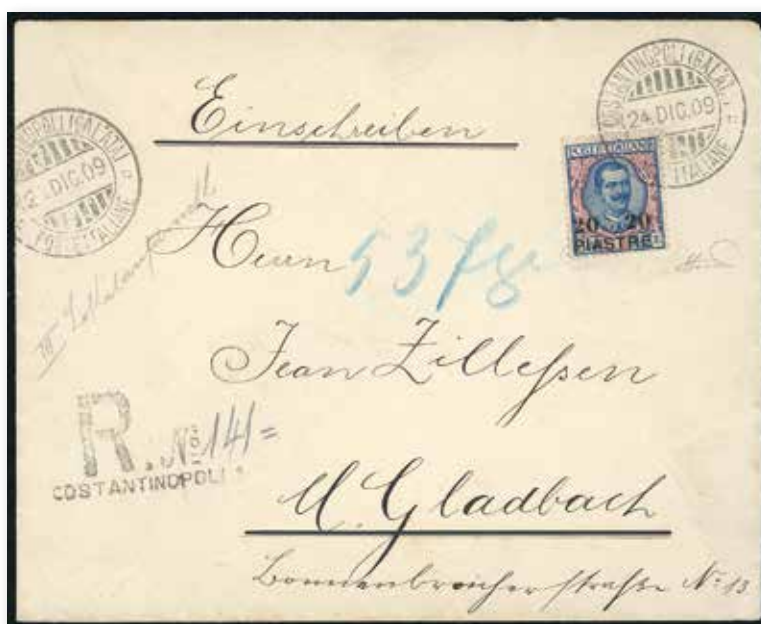 COSTANTINOPOLI (GALATA)
24.DIC.09
POSTE ITALIANE
COSTANTINOPOLI (GALATA)
24.DIC.09
POSTE ITALIANE
Einschreiben
20 20
PIASTRE
Herrn
537
Jean Zilleßen
III
R. No 141=
COSTANTINOPOLI
M. Gladbach
Bonnenbroicherstraße No 13